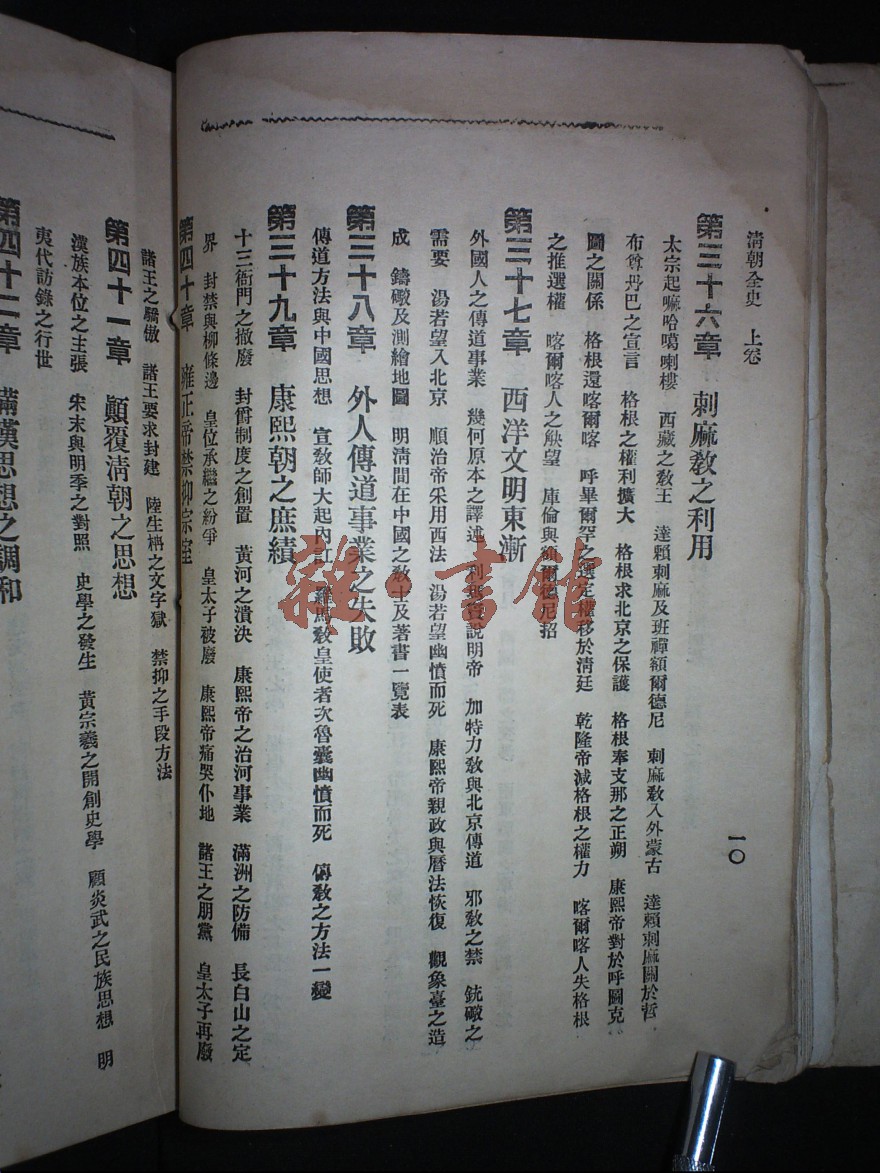 清朝全史 上卷
一〇
第三十六章 刺麻敎之利用
太宗起嘛哈噶喇樓 西藏之敎王 達賴刺麻及班禪額爾德尼 刺麻敎入外蒙古 達賴刺麻關於哲
布尊丹巴之宣言 格根之權利擴大 格根求北京之保護 格根奉支那之正朔 康熙帝對於呼圖克
圖之關係 格根還喀爾喀 呼畢爾罕之選定權移於淸廷 乾隆帝減格根之權力 喀爾喀人失格根
之推選權 喀爾喀人之觖望 庫倫與額爾德尼招
第三十七章 西洋文明東漸
外國人之傳道事業 幾何原本之譯述 利瑪竇說明帝 加特力敎與北京傳道 邪敎之禁 銃礮之
需要 湯若望入北京 順治帝采用西法 湯若望幽憤而死 康熙帝親政與曆法恢復 觀象臺之造
成 鑄礮及測繪地圖 明淸間在中國之敎士及著書一覽表
第三十八章 外人傳道事業之失敗
傳道方法與中國思想 宣敎師大起內訌 羅馬敎皇使者次魯囊幽憤而死 傳敎之方法一變
第三十九章 康熙朝之庶績
十三衙門之撤廢 封爵制度之創置 黃河之潰決 康熙帝之治河事業 滿洲之防備 長白山之定
界 封禁與柳條邊 皇位承繼之紛爭 皇太子被廢 康熙帝痛哭仆地 諸王之朋黨 皇太子再廢
第四十章 雍正帝禁抑宗室
諸王之驕傲 諸王要求封建 陸生柟之文字獄 禁抑之手段方法
第四十一章 顚覆淸朝之思想
漢族本位之主張 宋末與明季之對照 史學之發生 黃宗羲之開創史學 顧炎武之民族思想 明
夷代訪錄之行世
第四十二章 滿漢思想之調和
雜·書館